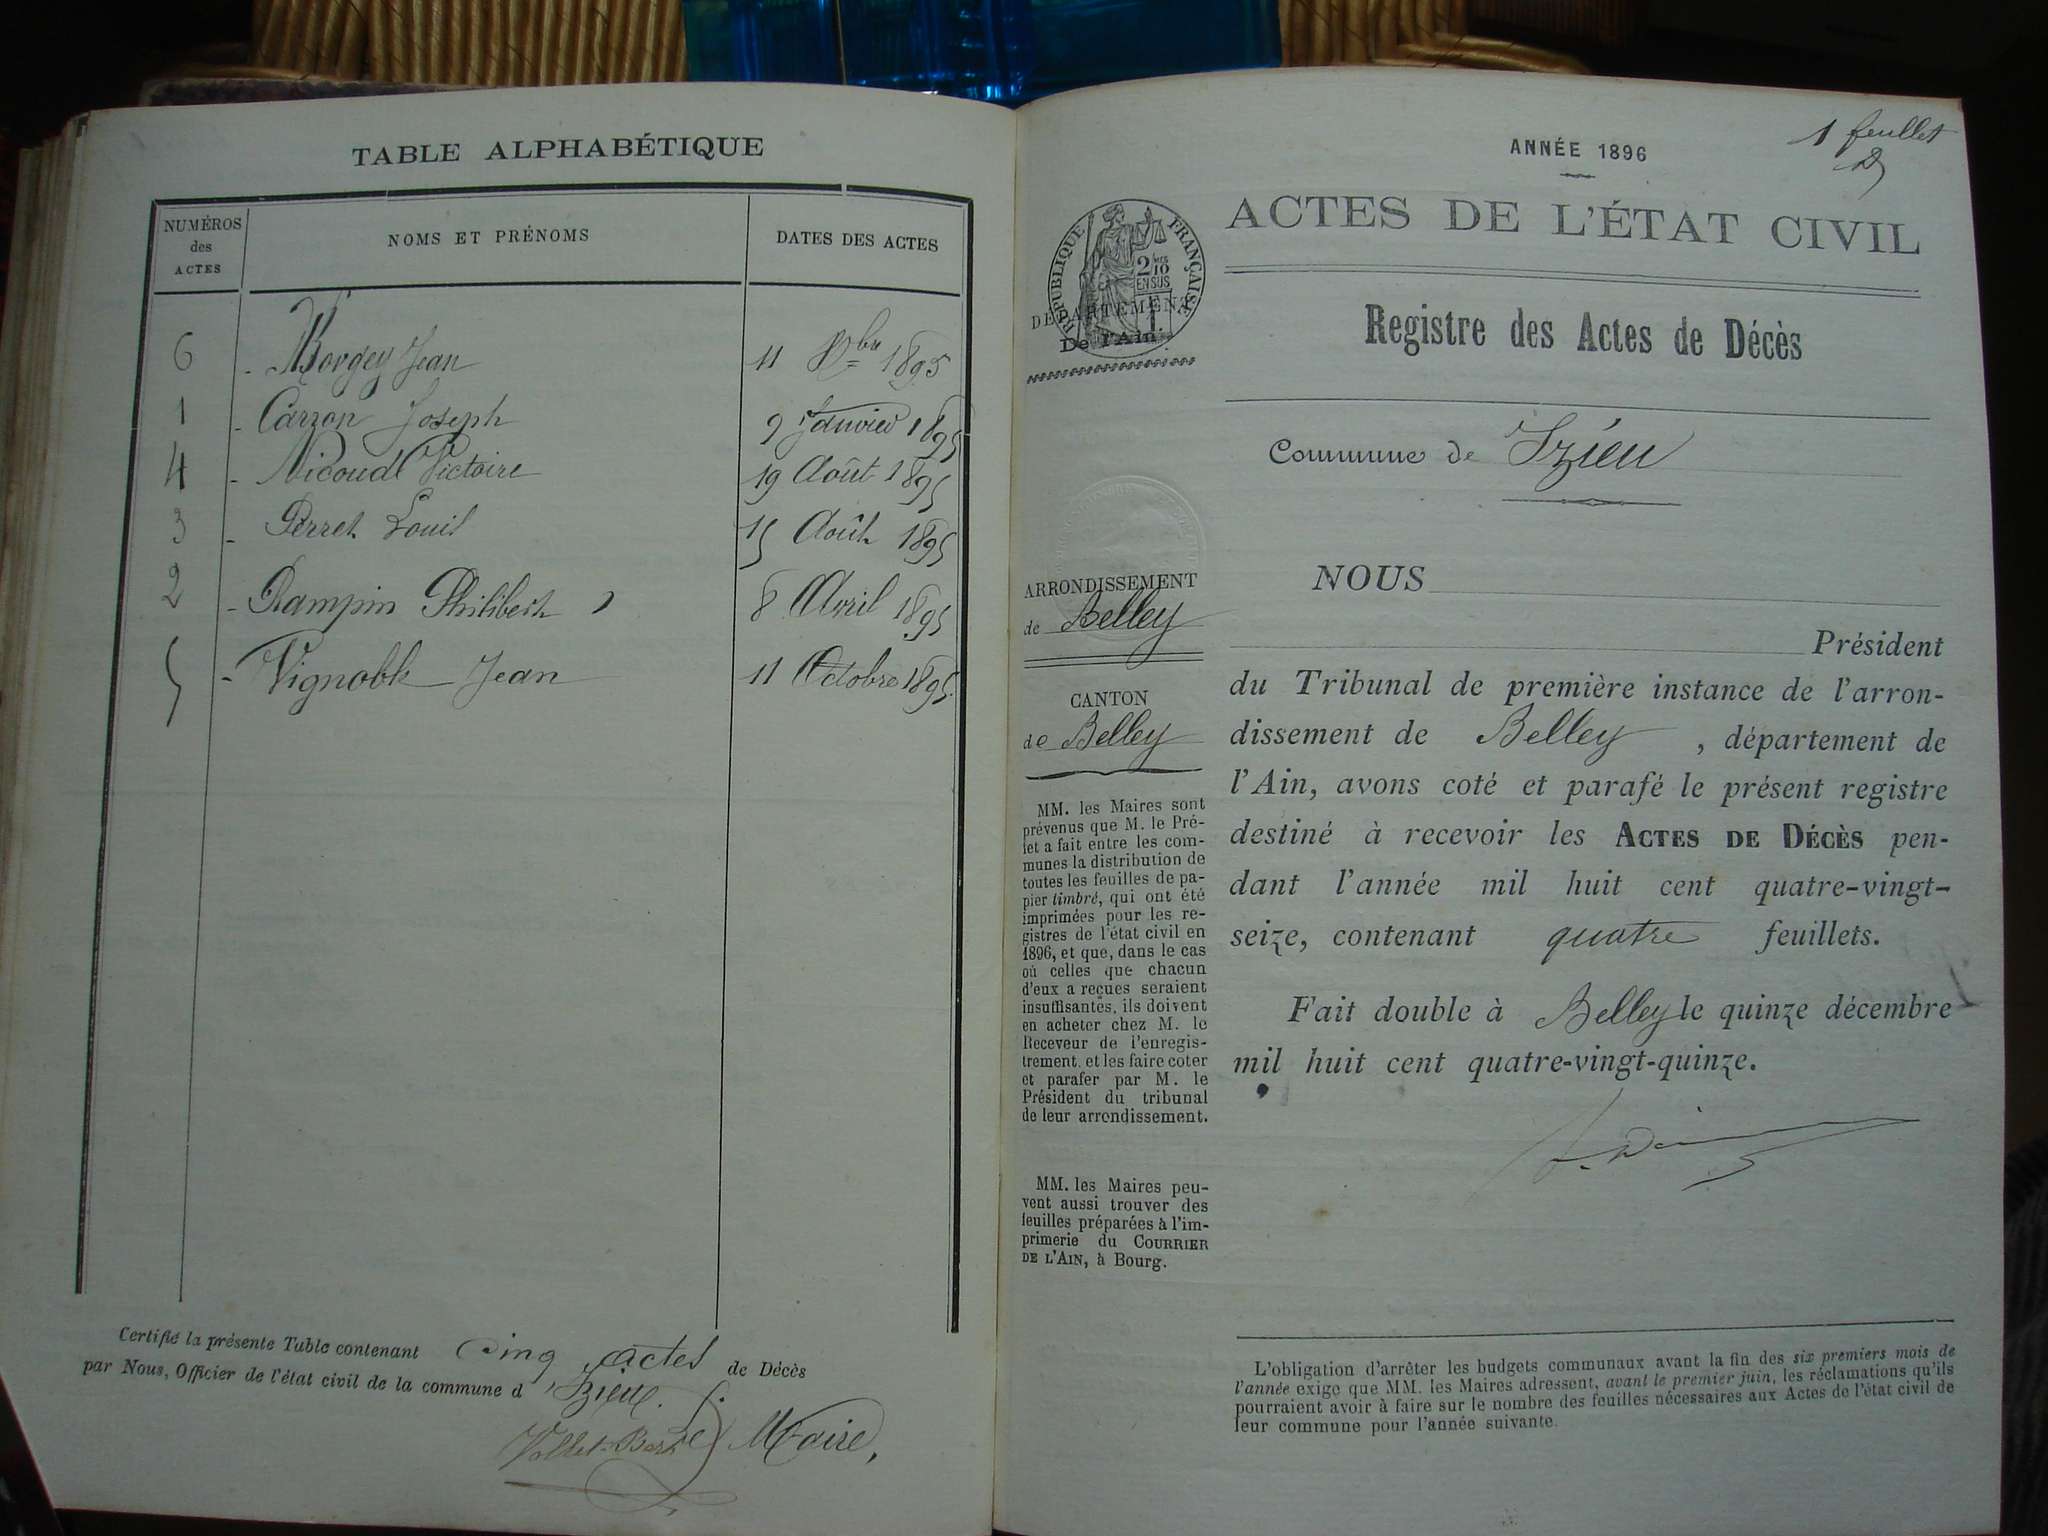 TABLE ALPHABÉTIQUE
NUMÉROS des ACTES
NOMS ET PRÉNOMS
DATES DES ACTES
6 - Borgey Jean 11 Xbre 1895
1 - Carron Joseph 9 Janvier 1895
4 - Nicoud Victoire 19 Août 1895
3 - Perret Louis 15 Août 1895
2 - Rampin Philibert 8 Avril 1895
5 - Vignoble Jean 11 Octobre 1895
Certifié la présente Table contenant cinq actes de Décès
par Nous, Officier de l'état civil de la commune d'Izieu.
Le Maire,
1 feuillet
ANNÉE 1896
ACTES DE L'ÉTAT CIVIL
RÉPUBLIQUE FRANÇAISE
2/10 EN SUS
DÉPARTEMENT
De l'Ain.
Registre des Actes de Décès
Commune de Izieu
ARRONDISSEMENT
de Belley
CANTON
de Belley
MM. les Maires sont
prévenus que M. le Pré-
fet a fait entre les com-
munes la distribution de
toutes les feuilles de pa-
pier timbré, qui ont été
imprimées pour les re-
gistres de l'état civil en
1896, et que, dans le cas
où celles que chacun
d'eux a reçues seraient
insuffisantes, ils doivent
en acheter chez M. le
Receveur de l'enregis-
trement, et les faire coter
et parafer par M. le
Président du tribunal
de leur arrondissement.
MM. les Maires peu-
vent aussi trouver des
feuilles préparées à l'im-
primerie du COURRIER
DE L'AIN, à Bourg.
NOUS
Président
du Tribunal de première instance de l'arron-
dissement de Belley, département de
l'Ain, avons coté et parafé le présent registre
destiné à recevoir les ACTES DE DÉCÈS pen-
dant l'année mil huit cent quatre-vingt-
seize, contenant quatre feuillets.
Fait double à Belley le quinze décembre
mil huit cent quatre-vingt-quinze.
L'obligation d'arrêter les budgets communaux avant la fin des six premiers mois de
l'année exige que MM. les Maires adressent, avant le premier juin, les réclamations qu'ils
pourraient avoir à faire sur le nombre des feuilles nécessaires aux Actes de l'état civil de
leur commune pour l'année suivante.